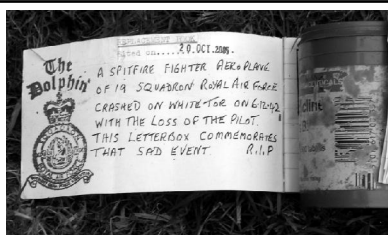 REPLACEMENT BOOK
Sited on...... 20.OCT.2005.
The
Dolphin'
A SPITFIRE FIGHTER AEROPLANE
OF 19 SQUADRON ROYAL AIR FORCE
CRASHED ON WHITE TOR ON 6.12.42
WITH THE LOSS OF THE PILOT.
THIS LETTERBOX COMMEMORATES
THAT SAD EVENT R.I.P